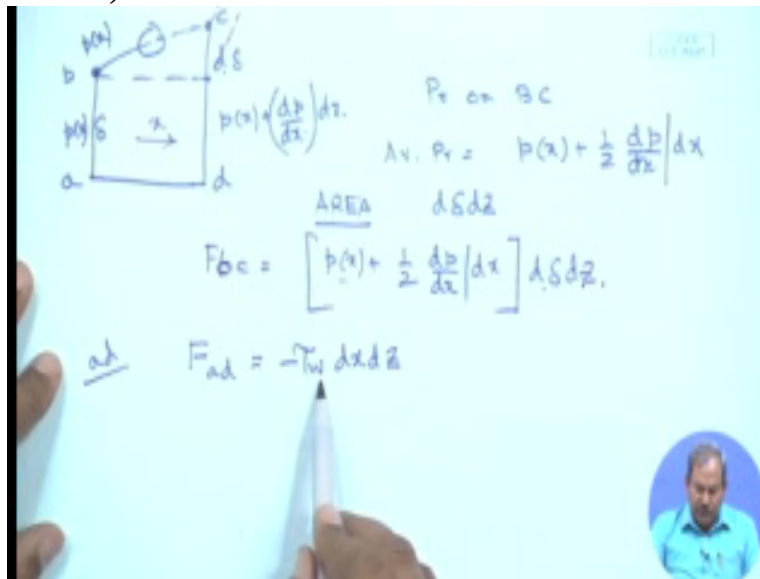 p(x)
c
b
dδ
p(x) δ
x
p(x) + (dp/dx) dx.
a
d
Pr on BC
Av. Pr = p(x) + 1/2 dp/dx | dx
AREA dδdz
Fbc = [p(x) + 1/2 dp/dx | dx] dδdz.
ad
Fad = -τw dxdz